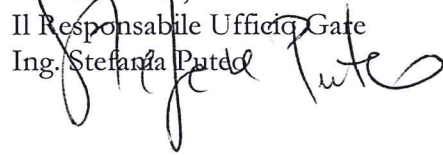 Il Responsabile Ufficio Gare
Ing. Stefania Puteo